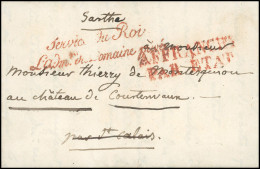 Sarthe
Service du Roi
L'adm. du Domaine
à Monsieur
AFFRANCHI
PAR ETAT
Monsieur Thierry de Montesquiou
au château de Courtenvaux
par St Calais.